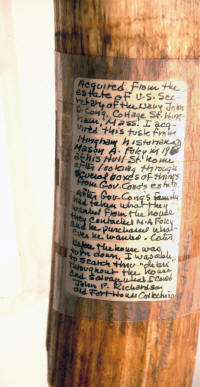 Acquired from the
estate of U.S. Sec-
retary of the Navy John
D. Long, Cottage St. Hing-
ham, Mass. I acq-
uired this tusk from
Hingham historian
Mason A. Foley in
at his Hull St. home
after looking through
several boxes of things
from Gov. Long's estate.
After Gov. Long's family
had taken what they
wanted from the house
they contacted M.A. Foley
and he purchased what-
ever he wanted. Later
before the house was
torn down, I was able
to search thru "debri"
throughout the house
and salvage what I could
John P. Richardson
Old Fort House Collections